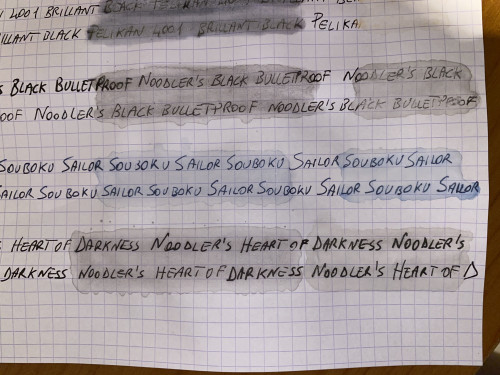 4001 BRILLANT BLACK PELIKAN 4001 BRILLANT
BRILLANT BLACK PELIKAN 4001 BRILLANT BLACK PELIKA
S BLACK BULLETPROOF NOODLER'S BLACK BULLETPROOF NOODLER'S BLACK
OOF NOODLER'S BLACK BULLETPROOF NOODLER'S BLACK BULLETPROOF
SOUBOKU SAILOR SOUBOKU SAILOR SOUBOKU SAILOR SOUBOKU SAILOR
SAILOR SOUBOKU SAILOR SOUBOKU SAILOR SOUBOKU SAILOR SOUBOKU SAILOR
HEART OF DARKNESS NOODLER'S HEART OF DARKNESS NOODLER'S
DARKNESS NOODLER'S HEART OF DARKNESS NOODLER'S HEART OF D